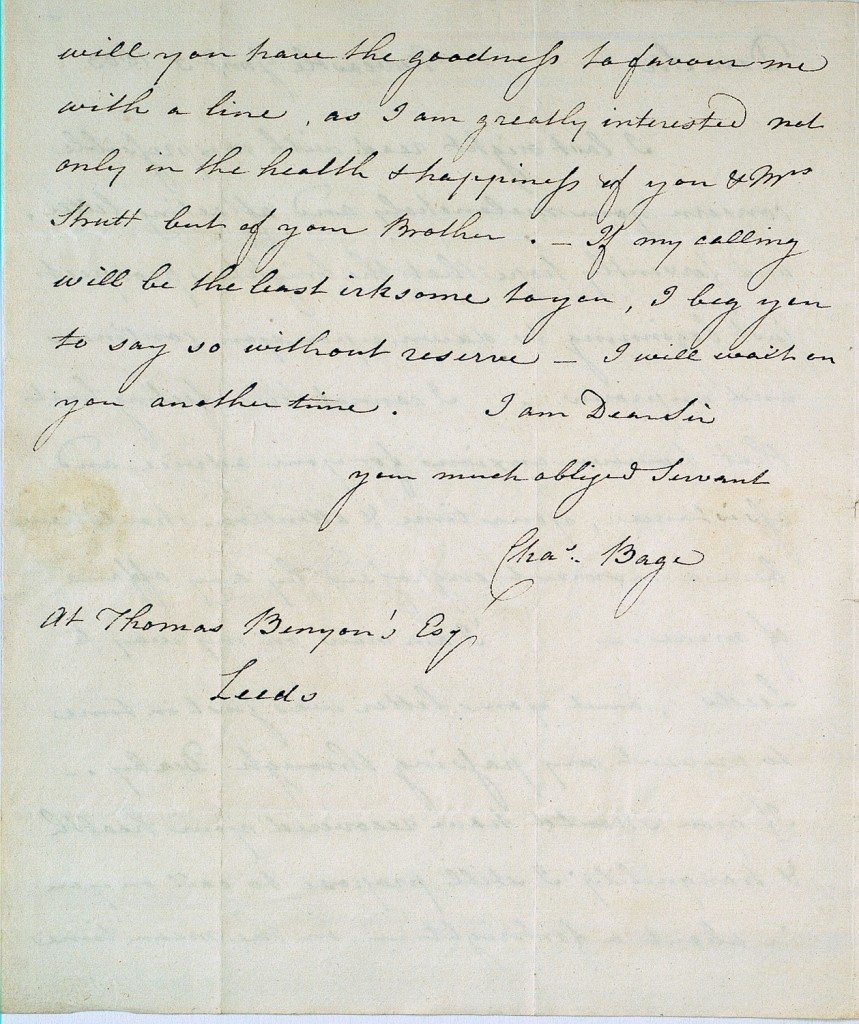 will you have the goodness to favour me
with a line, as I am greatly interested not
only in the health & happiness of you & Mrs
Strutt but of your Brother. – If my calling
will be the least irksome to you, I beg you
to say so without reserve – I will wait on
you another time. I am Dear Sir
your much obliged Servant
Chas. Bage
At Thomas Benyon's Esqr
Leeds